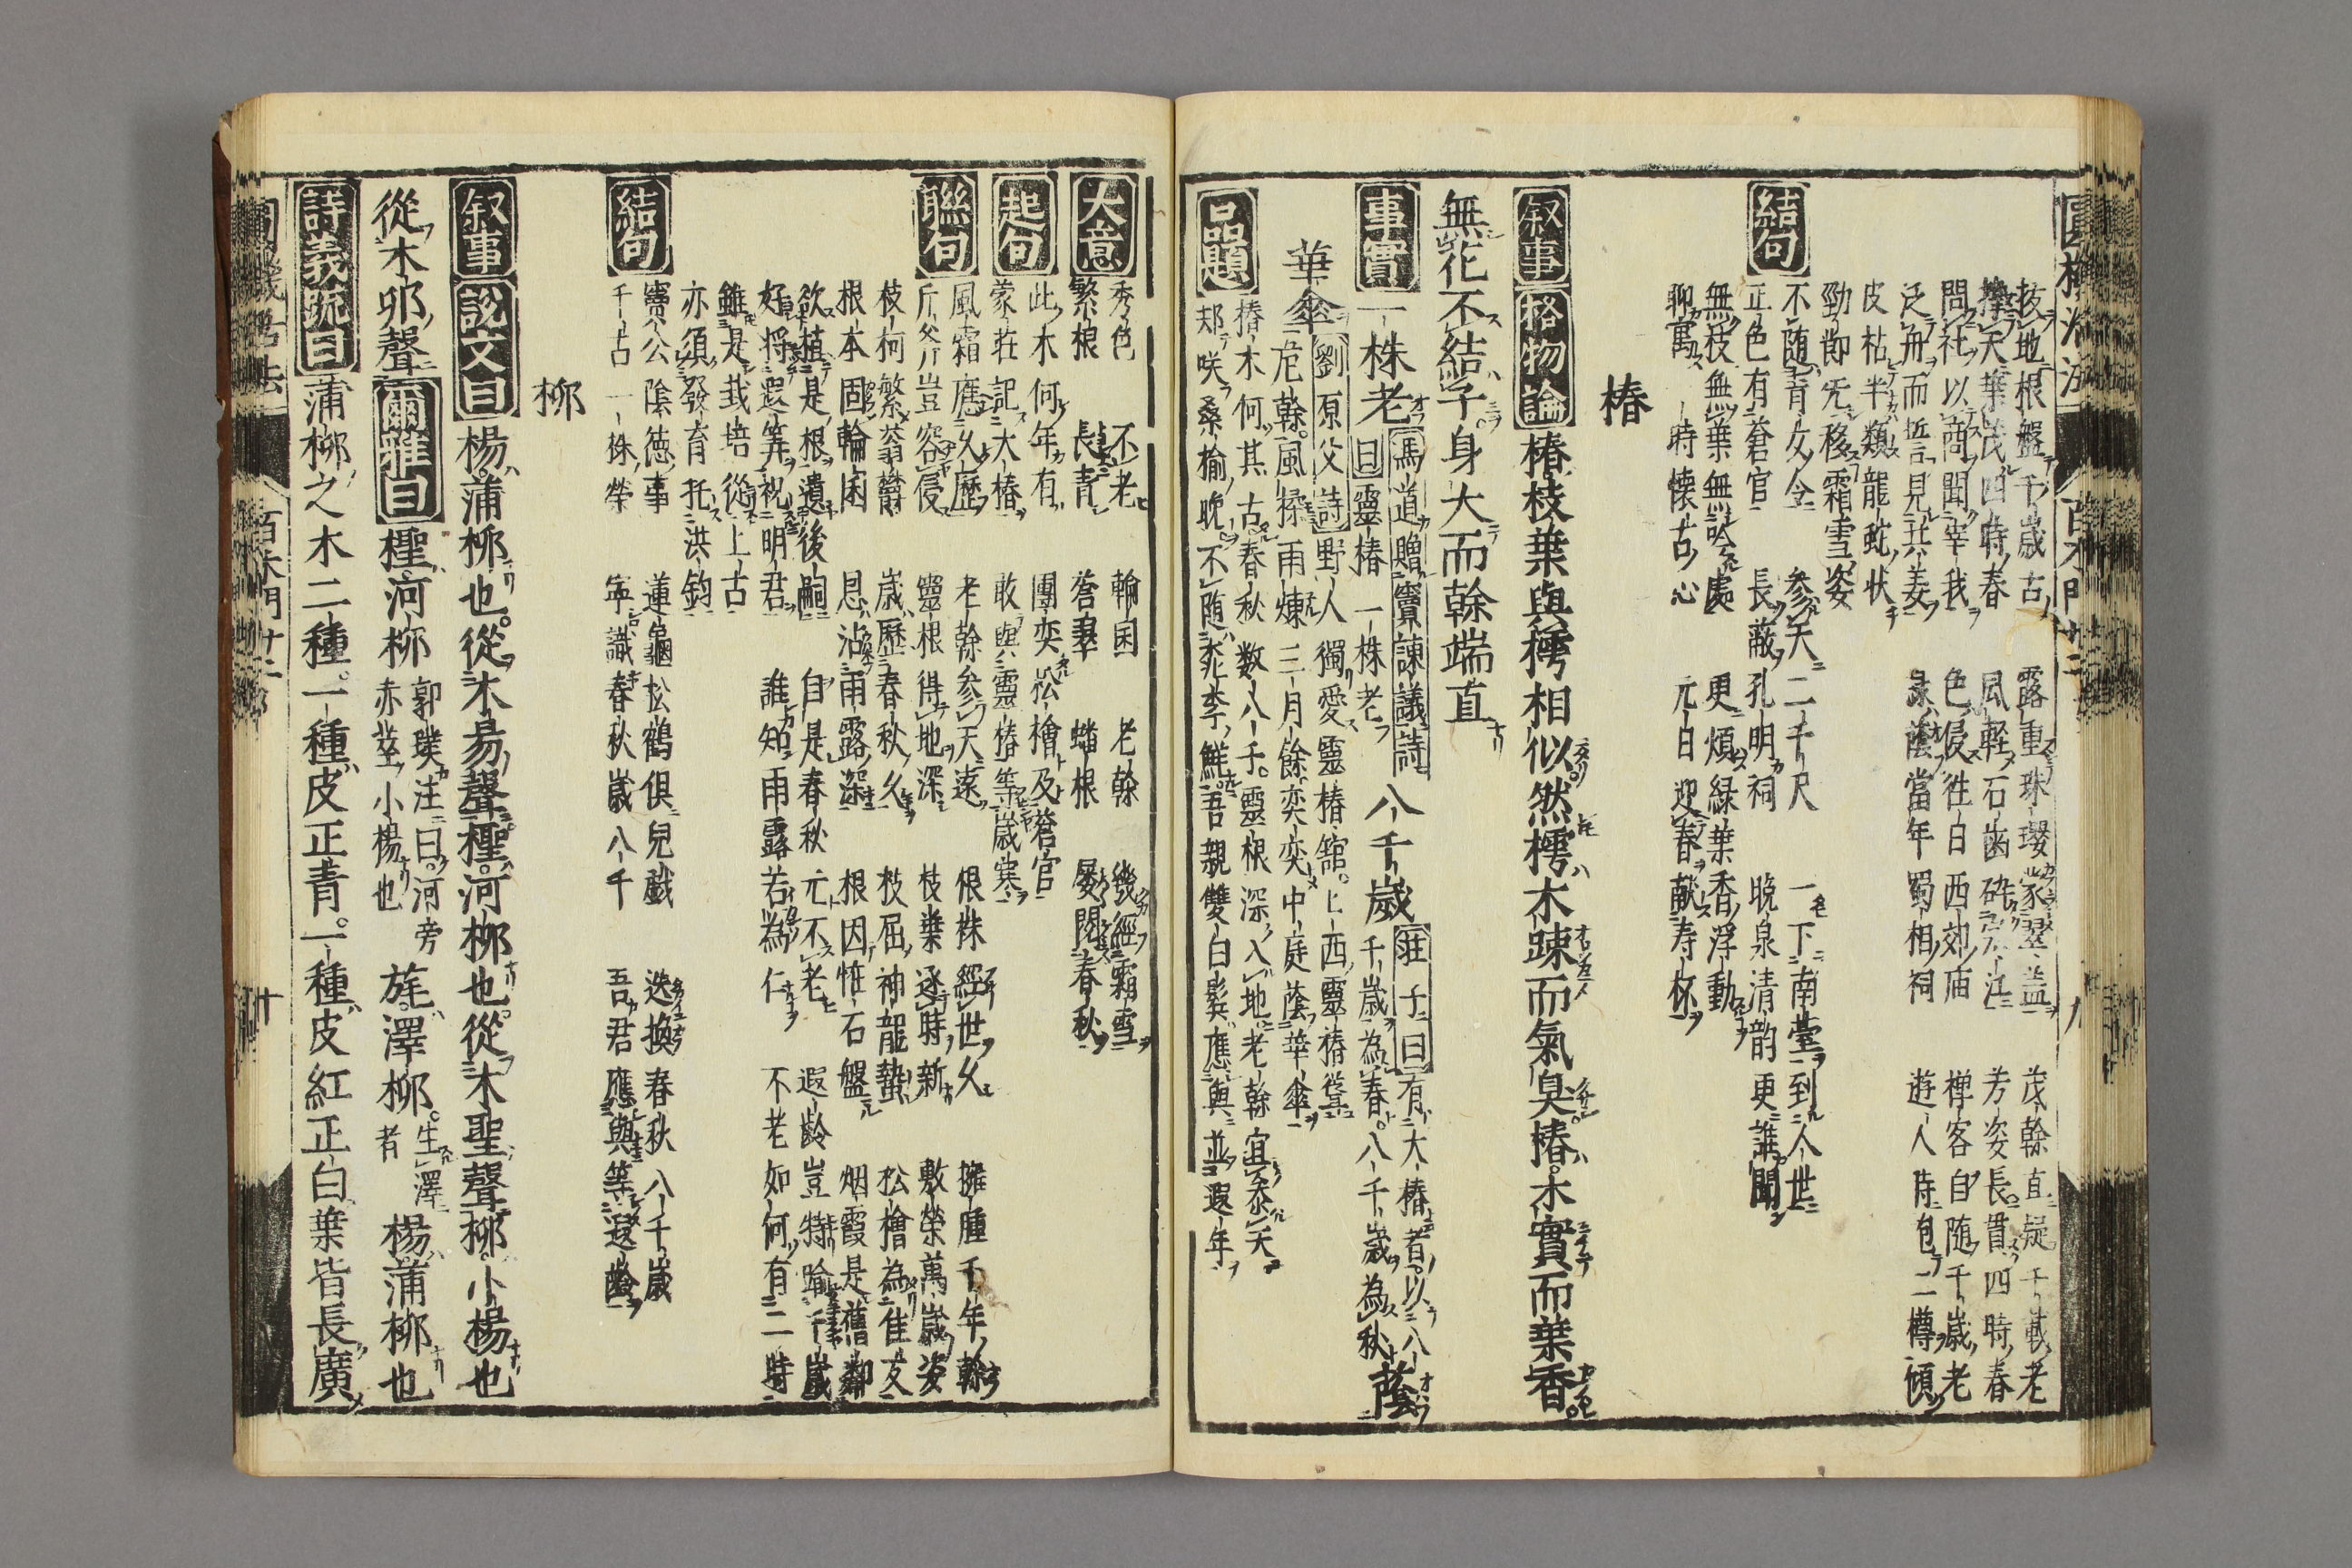 拔地根盤千歲古　露重珠瓔蒙翠蓋　茂幹直疑千載老
擎天葉茂四時春　風輕石齒　芳姿長貫四時春
問社以商聞宰我　色侵往日西郊庙　禅客自随千歲老
泛舟而誓見共姜　緑蔭當年蜀相祠　遊人時包二樽傾
皮枯半類龍蛇状
勁節旡移霜雪姿
結句　不随青女令　参天二千尺　一下南臺到人世
正色有蒼官　長蔽孔明祠　晚泉清韵更誰聞
無枝無葉無吟處　更煩緑葉香浮動
聊寓一時懐古心　元日迎春献寿杯
椿
叙事　格物論　椿枝葉與樗相似然樗木踈而氣臭椿木實而葉香
無花不結子身大而幹端直
事實　一株老　馮道贈竇諌議詩　八千歲　荘子曰有大椿者以八
曰靈椿一株老　千歲為春八千歲為秋　蔭
華傘　劉原父詩　野人獨愛靈椿舘上西靈椿
危幹風揉雨煉三月餘奕奕中庭蔭華傘
品題　椿木何其古春秋数八千靈根深入地老幹宜参天
郏咲桑榆晚不随桃李鮮吾親雙白髪應與並遐年
大意　秀色　不老　輪囷　老幹　幾經霜雪
繁根　長青　蒼翠　蟠根　屡閲春秋
起句　此木何年有　團奕松檜及蒼官
蒙荘記大椿　敢與靈椿等歲寒
聯句　風霜應久歷　老幹参天遠　根株經世久　擁腫千年幹
斤斧豈容侵　靈根得地深　枝葉逐時新　敷榮萬歲姿
枝柯繁蓊欝　歲歷春秋久　枝屈神龍蟄　松檜為佳友
根本固輪囷　恩沾雨露深　根因恠石盤　烟霞是舊鄰
欲植是根遺後嗣　自是春秋元不老　遐齡豈特踰千歲
好将遐筭祝明君　誰知雨露若為仁　不老如何有二時
雖是栽培從上古
亦須發育托洪鈞
結句　竇公陰徳事　蓮龜松鶴倶兒戯　迭換春秋八千歲
千古一株榮　寧識春秋歲八千　吾君應與等遐齡
柳
叙事　說文曰　楊蒲柳也從木昜聲檉河柳也從木聖聲柳小楊也
從木丣聲　爾雅曰　檉河柳　郭璞注曰河旁赤莖小楊也　旄澤柳　生澤者　楊蒲柳也
詩義疏曰　蒲柳之木二種一種皮正青一種皮紅正白葉皆長廣
百木門廿二　十